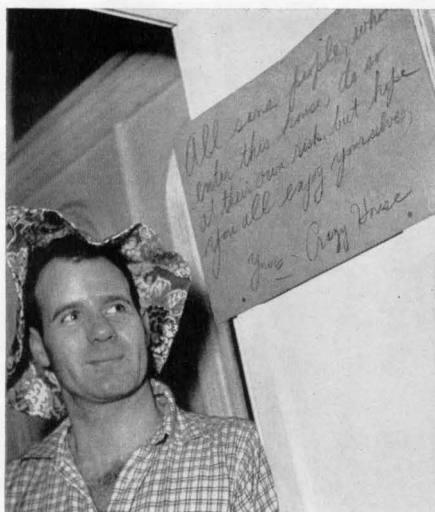 All sane people, who
enter this house, do so
at their own risk, but hope
you all enjoy yourselves,
Yours - Crazy House